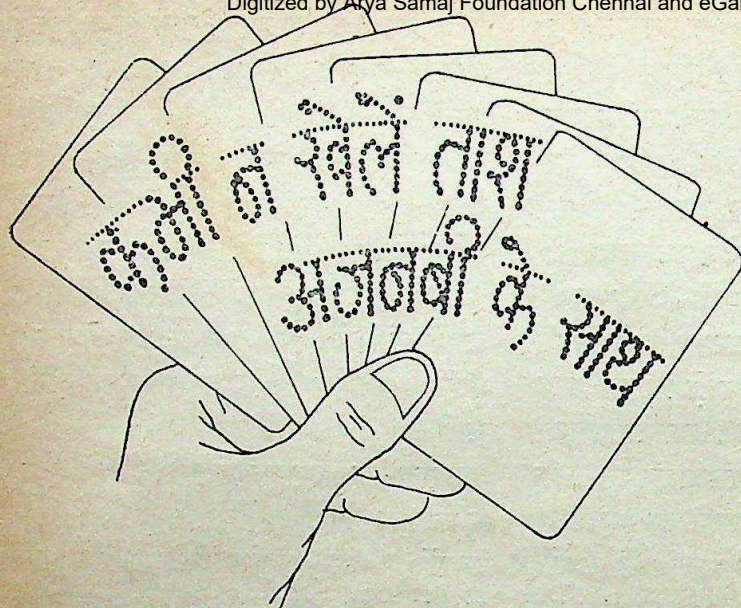 Digitized by Arya Samaj Foundation Chennai and eGa
कभी न खेलें ताश
अजनबी के साथ